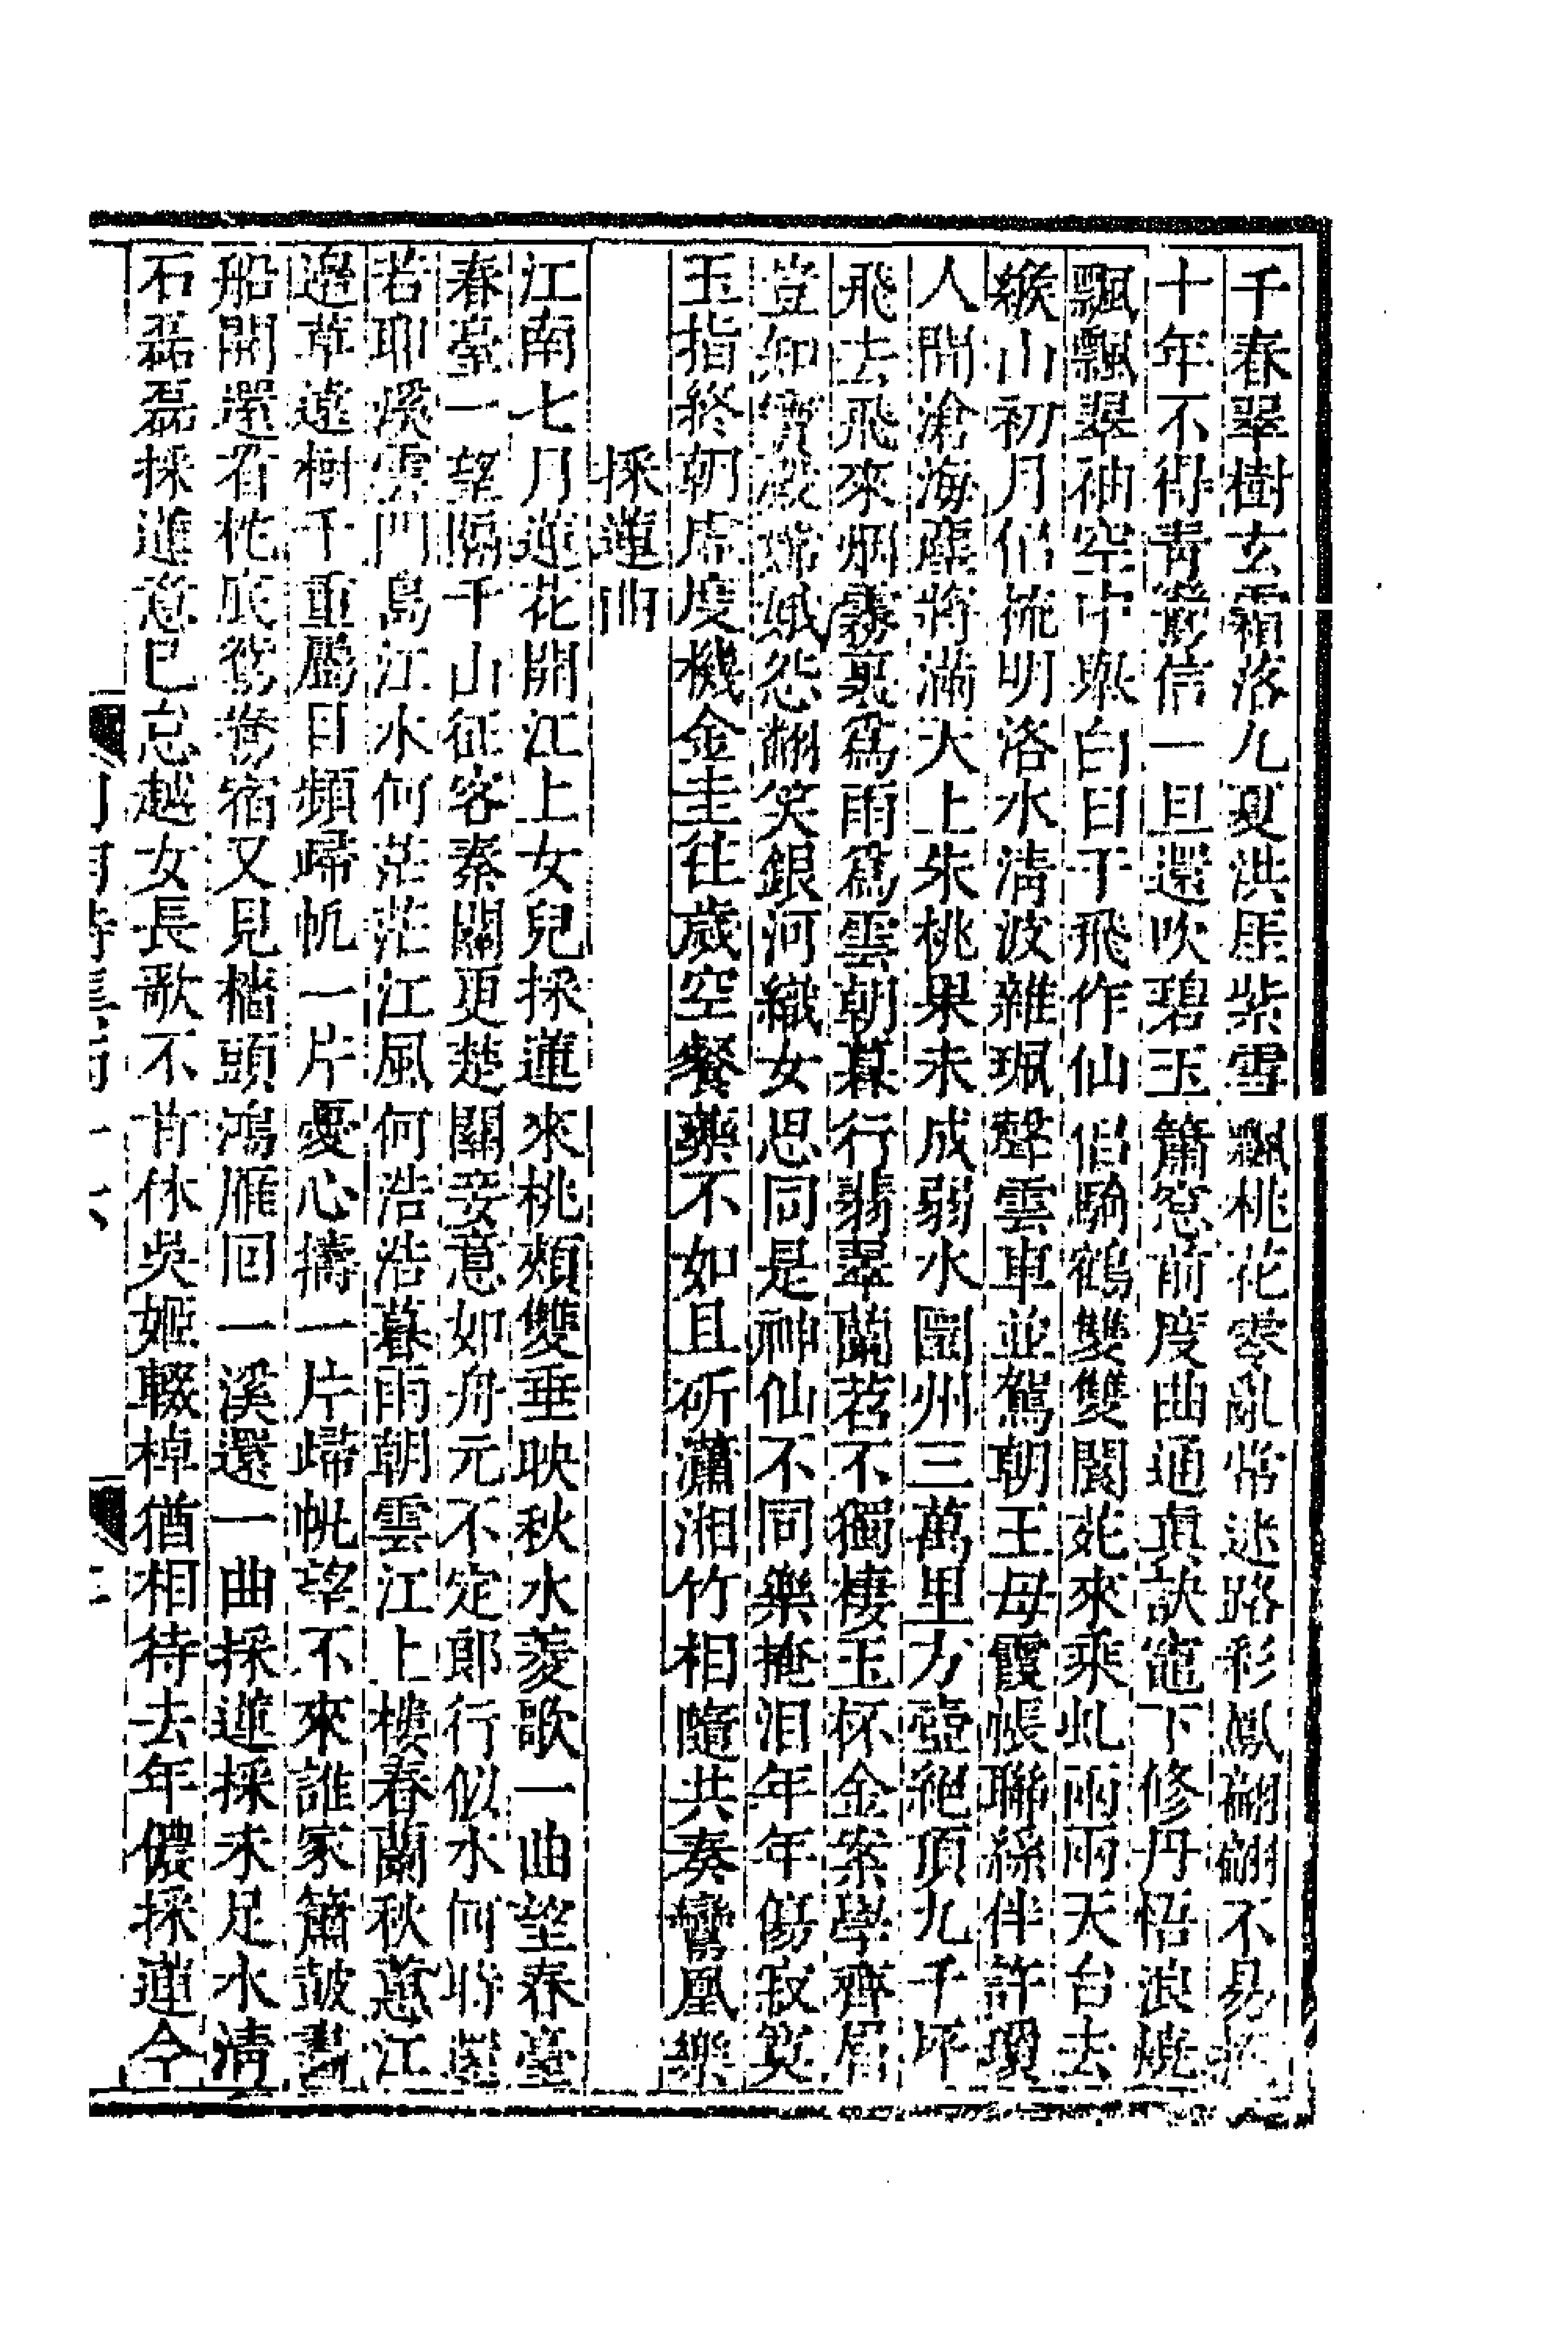 千春翠樹玄霜落九夏洪厓紫雪飄桃花零亂常迷路彩鳳翩翩不易
十年不得青鸞信一旦還吹碧玉簫窓前度曲通真訣竈下修丹悟浪燒
飄飄翠袖空中舉白日于飛作仙侶驂鶴雙雙閬苑來乘虬兩兩天台去
緱山初月侶梳明洛水清波雜珮聲雲車並駕朝王母霞帳聯絲伴許瓊
人間滄海塵將滿天上朱桃果未成弱水圍州三萬里方壺絕頂九千坪
飛去飛來烟霧裏爲雨爲雲朝暮行翡翠蘭苕不獨棲玉杯金案學齊眉
豈知寶殿嫦娥怨翻笑銀河織女思同是神仙不同樂掩泪年年傷寂寞
玉指終朝虛度機金圭往歲空餐藥不如且斫瀟湘竹相隨共奏鸞凰樂
採蓮曲
江南七月蓮花開江上女兒採蓮來桃頰雙垂映秋水菱歌一曲望春臺
春臺一望隔千山征客秦關更楚關妾意如舟元不定郎行似水何時還
若耶溪雲門島江水何茫茫江風何浩浩暮雨朝雲江上樓春蘭秋蕙江
邊草遠樹千重屬目頻歸帆一片憂心擣一片歸帆望不來誰家簫鼓畫
船開還看花底鴛鴦宿又見檣頭鴻雁回一溪還一曲採蓮採未足水清
石磊磊採蓮意已怠越女長歌不肯休吳姬輟棹猶相待去年儂採蓮今